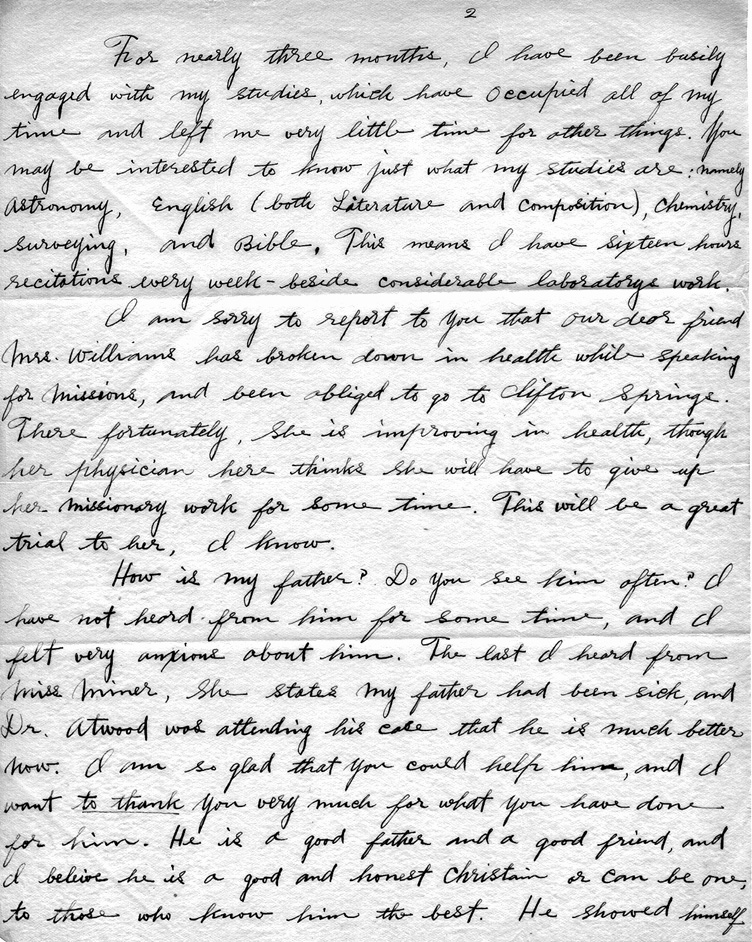 2
For nearly three months, I have been busily
engaged with my studies, which have occupied all of my
time and left me very little time for other things. You
may be interested to know just what my studies are: namely
Astronomy, English (both Literature and composition), Chemistry,
surveying, and Bible. This means I have sixteen hours
recitations every week - beside considerable laboratorys work.
I am sorry to report to you that our dear friend
Mrs. Williams has broken down in health while speaking
for missions, and been obliged to go to Clifton Springs.
There fortunately, she is improving in health, though
her physician here thinks she will have to give up
her missionary work for some time. This will be a great
trial to her, I know.
How is my father? Do you see him often? I
have not heard from him for some time, and I
felt very anxious about him. The last I heard from
Miss Miner, she states my father had been sick, and
Dr. Atwood was attending his case that he is much better
now. I am so glad that you could help him, and I
want to thank you very much for what you have done
for him. He is a good father and a good friend, and
I beleive he is a good and honest Christain or can be one,
to those who know him the best. He showed himself